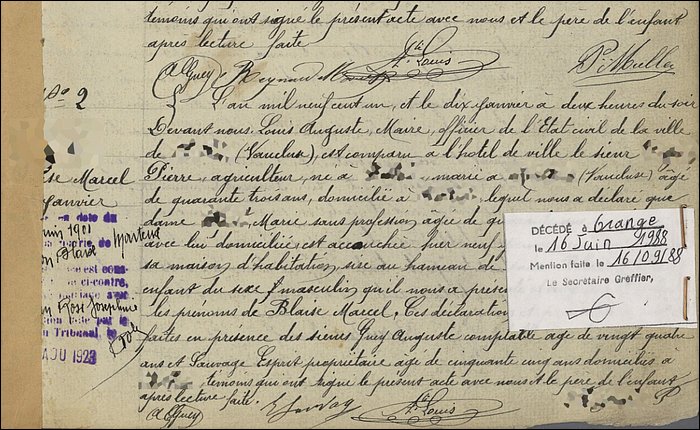 témoins qui ont signé le présent acte avec nous et le père de l'enfant
après lecture faite
A Guey Reynaud M Ate Louis P. Muller
No 2
L'an mil neuf cent un, et le dix Janvier à deux heures du soir
Devant nous Louis Auguste, Maire, officier de l'Etat civil de la ville
de (Vaucluse), est comparu à l'hotel de ville le sieur
Pierre, agriculteur, né à marié à (Vaucluse) âgé
de quarante trois ans, domicilié à lequel nous a déclaré que
dame Marie sans profession agée de
avec lui domiciliée est accouchée hier neuf
sa maison d'habitation, sise au hameau de
enfant du sexe masculin qu'il nous a présen
les prénoms de Blaise Marcel, Ces déclaration
faites en présence des sieurs Guey Auguste comptable agé de vingt quatre
ans et Sauvage Esprit propriétaire agé de cinquante cinq ans domiciliés à
témoins qui ont signé le présent acte avec nous et le père de l'enfant
après lecture faite.
A Guey E Sauvage Ate Louis P
se Marcel
Janvier
en date du
juin 1901
ci-contre,
Rose Joséphine
Tribunal, le
AOU 1923
DÉCÉDÉ à Orange
le 16 Juin 1988
Mention faite le 16/09/88
Le Secrétaire Greffier,